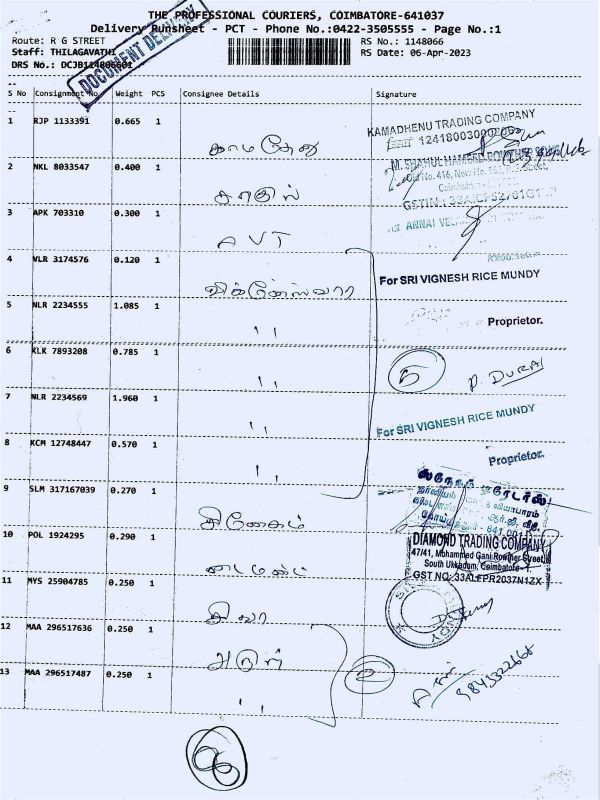 THE PROFESSIONAL COURIERS, COIMBATORE-641037
Delivery Runsheet - PCT - Phone No.:0422-3505555 - Page No.:1
Route: R G STREET
RS No.: 1148066
Staff: THILAGAVATHI
RS Date: 06-Apr-2023
DRS No.: DCJB114806601
DOCUMENT DELIVERY
S No Consignment No Weight PCS Consignee Details Signature
1 RJP 1133391 0.665 1 காமதேனு
KAMADHENU TRADING COMPANY
2 NKL 8033547 0.400 1
M. SHAHUL HAMEED ROWTHER SONS
Coimbatore
3 APK 703310 0.300 1 AVT
ANNAI
4 VLR 3174576 0.120 1 விக்னேஸ்வரா
For SRI VIGNESH RICE MUNDY
5 NLR 2234555 1.085 1 ''
Proprietor.
6 KLK 7893208 0.785 1 ''
5 P. DURAI
7 NLR 2234569 1.960 1 ''
For SRI VIGNESH RICE MUNDY
8 KCM 12748447 0.570 1 ''
Proprietor.
9 SLM 317167039 0.270 1
10 POL 1924295 0.290 1 டைமண்ட்
DIAMOND TRADING COMPANY
47/41, Mohammed Gani Rowther Street,
South Ukkadam, Coimbatore - 1.
GST NO: 33ALFPR2037N1ZX
11 MYS 25904785 0.250 1 சிவா
12 MAA 296517636 0.250 1 அருள்
13 MAA 296517487 0.250 1 ''
2